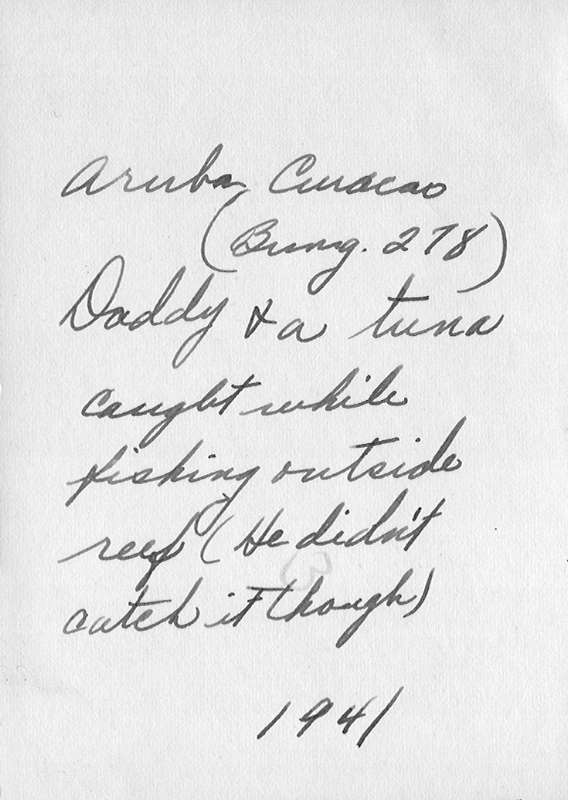 Aruba, Curacao
(Bung. 278)
Daddy & a tuna
caught while
fishing outside
reef (He didn't
catch it though)
1941